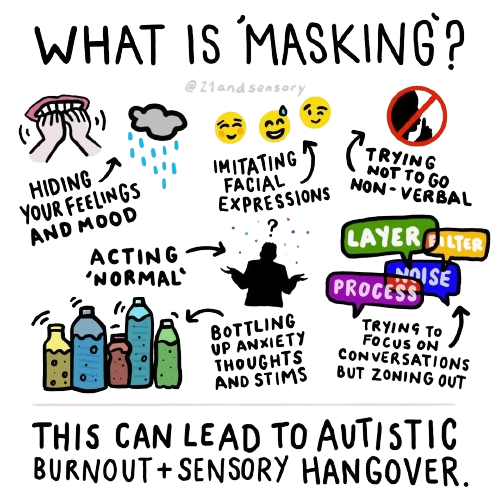 WHAT IS 'MASKING'?
@21andsensory
HIDING
YOUR FEELINGS
AND MOOD
IMITATING
FACIAL
EXPRESSIONS
TRYING
NOT TO GO
NON-VERBAL
ACTING
'NORMAL'
?
LAYER
FILTER
NOISE
PROCESS
BOTTLING
UP ANXIETY
THOUGHTS
AND STIMS
TRYING TO
FOCUS ON
CONVERSATIONS
BUT ZONING OUT
THIS CAN LEAD TO AUTISTIC
BURNOUT + SENSORY HANGOVER.